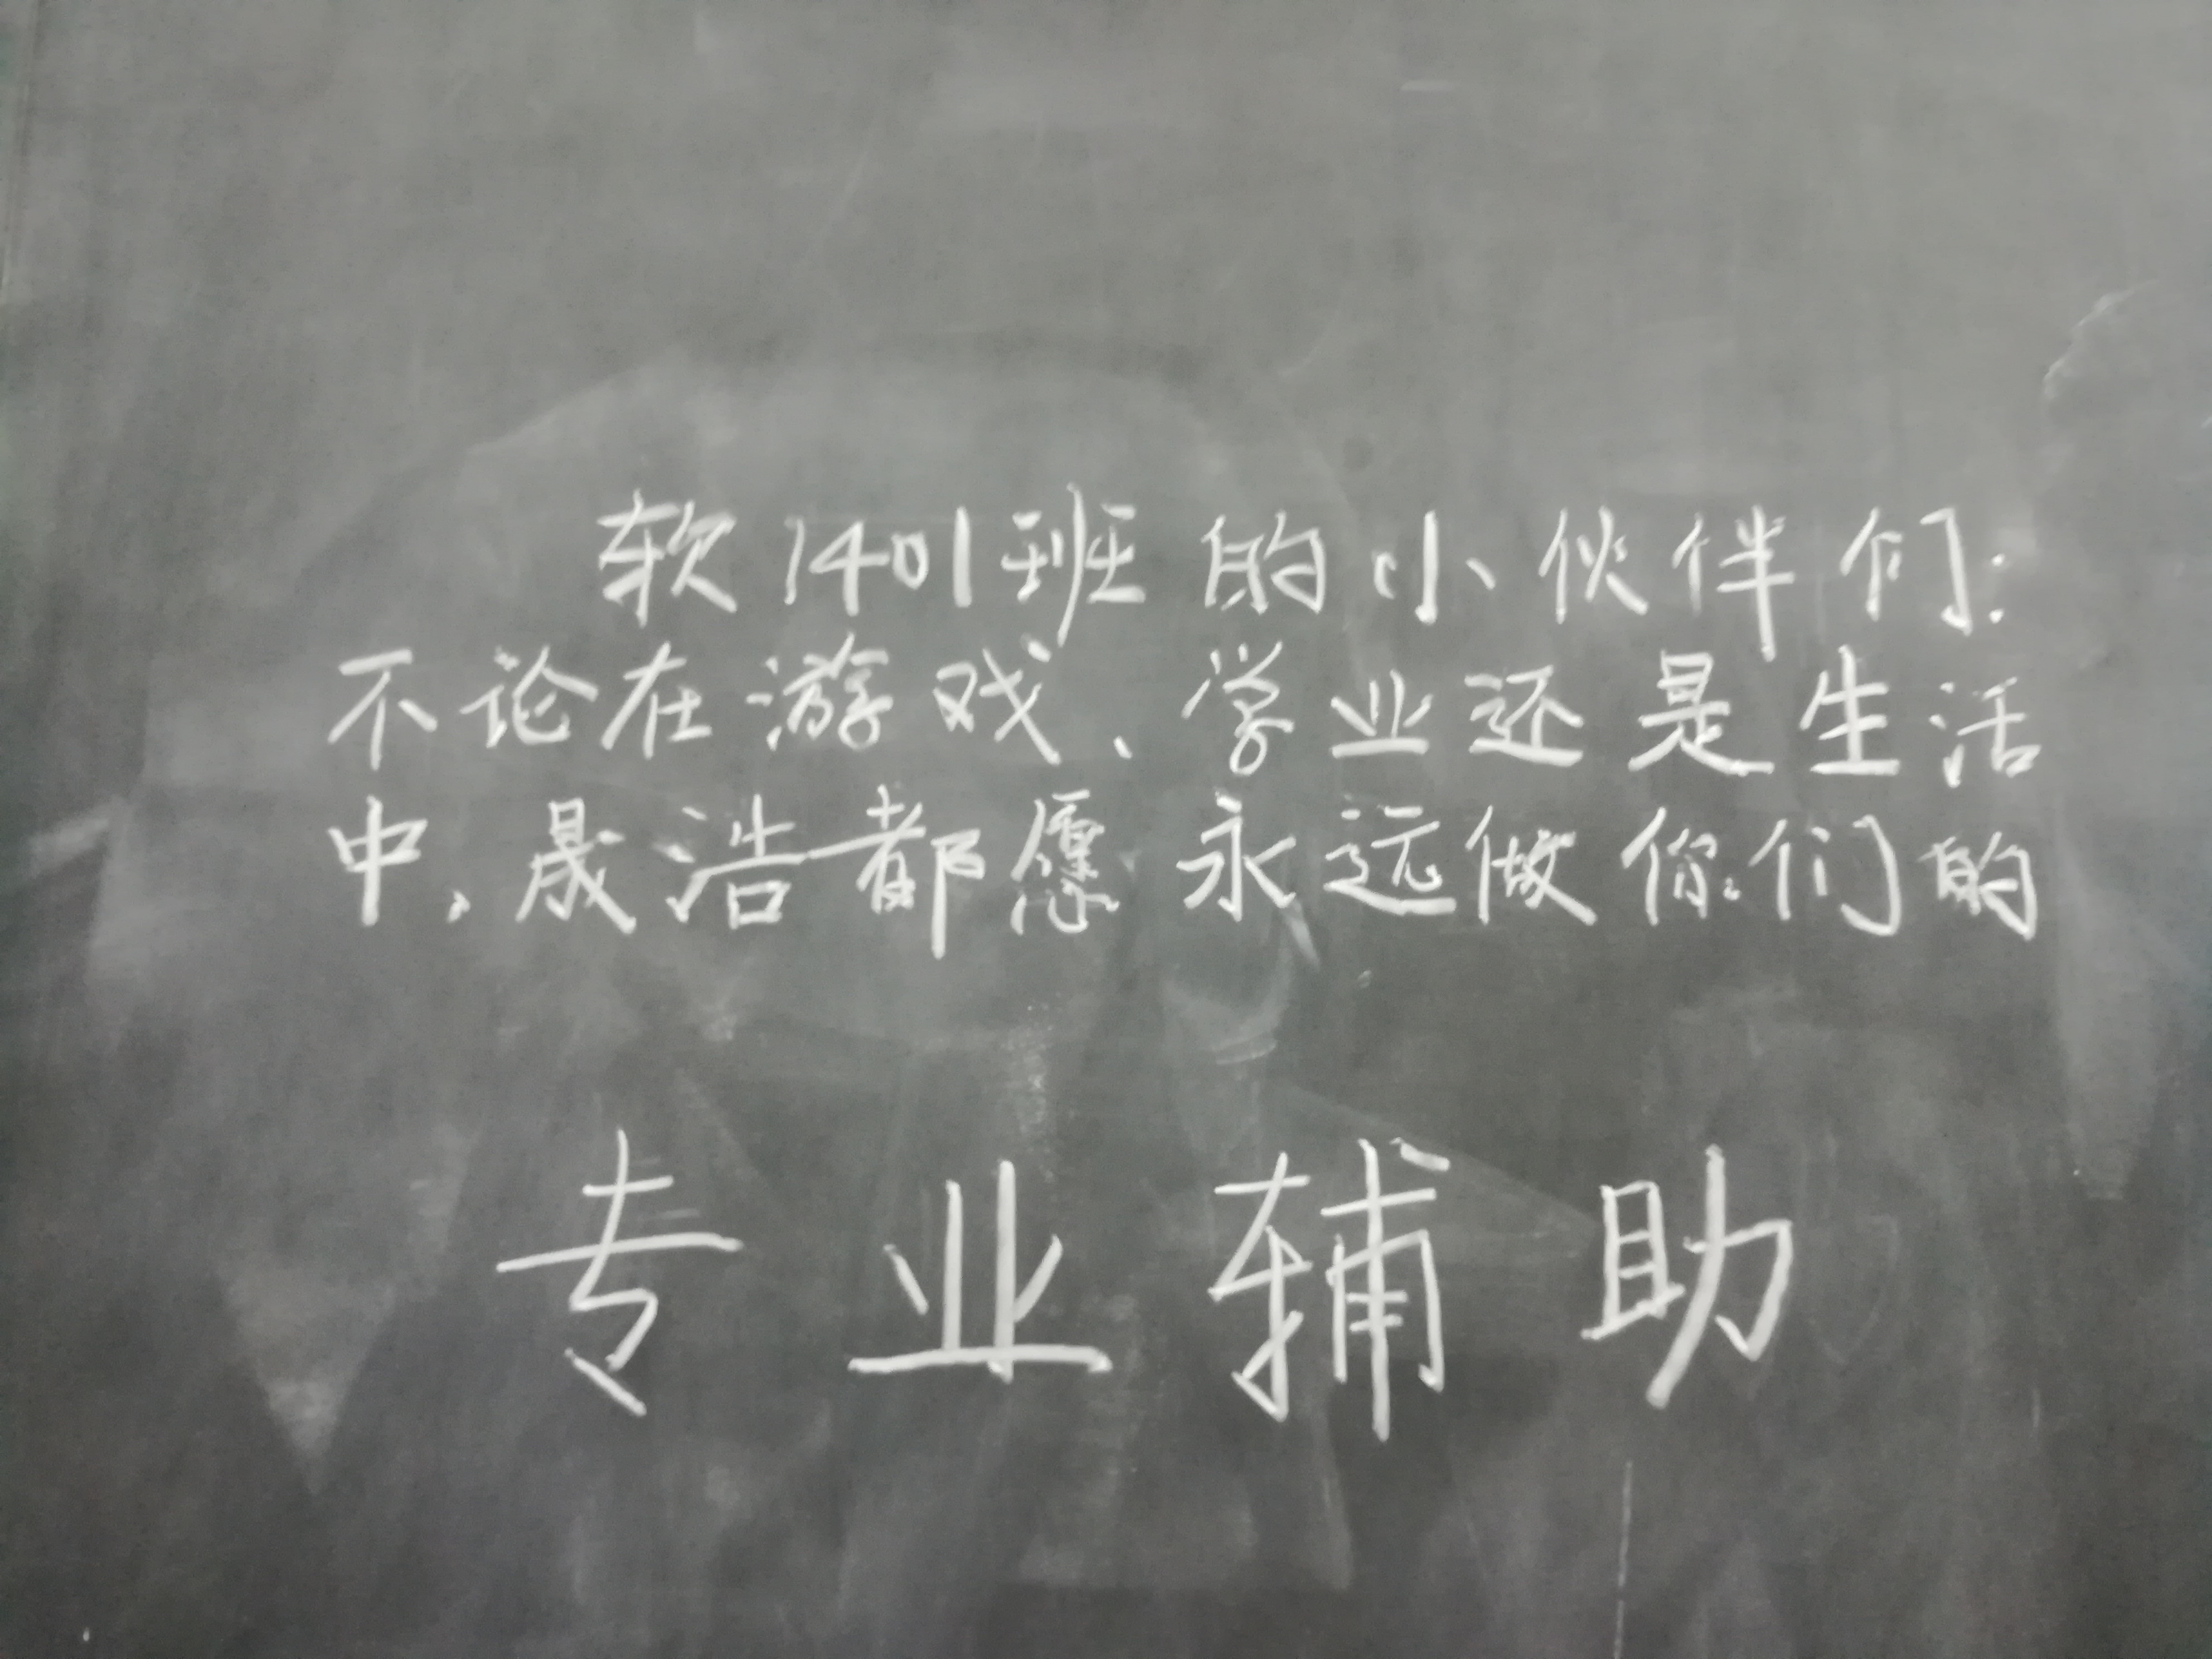 软1401班的小伙伴们:
不论在游戏、学业还是生活
中,晟浩都愿永远做你们的
专业辅助